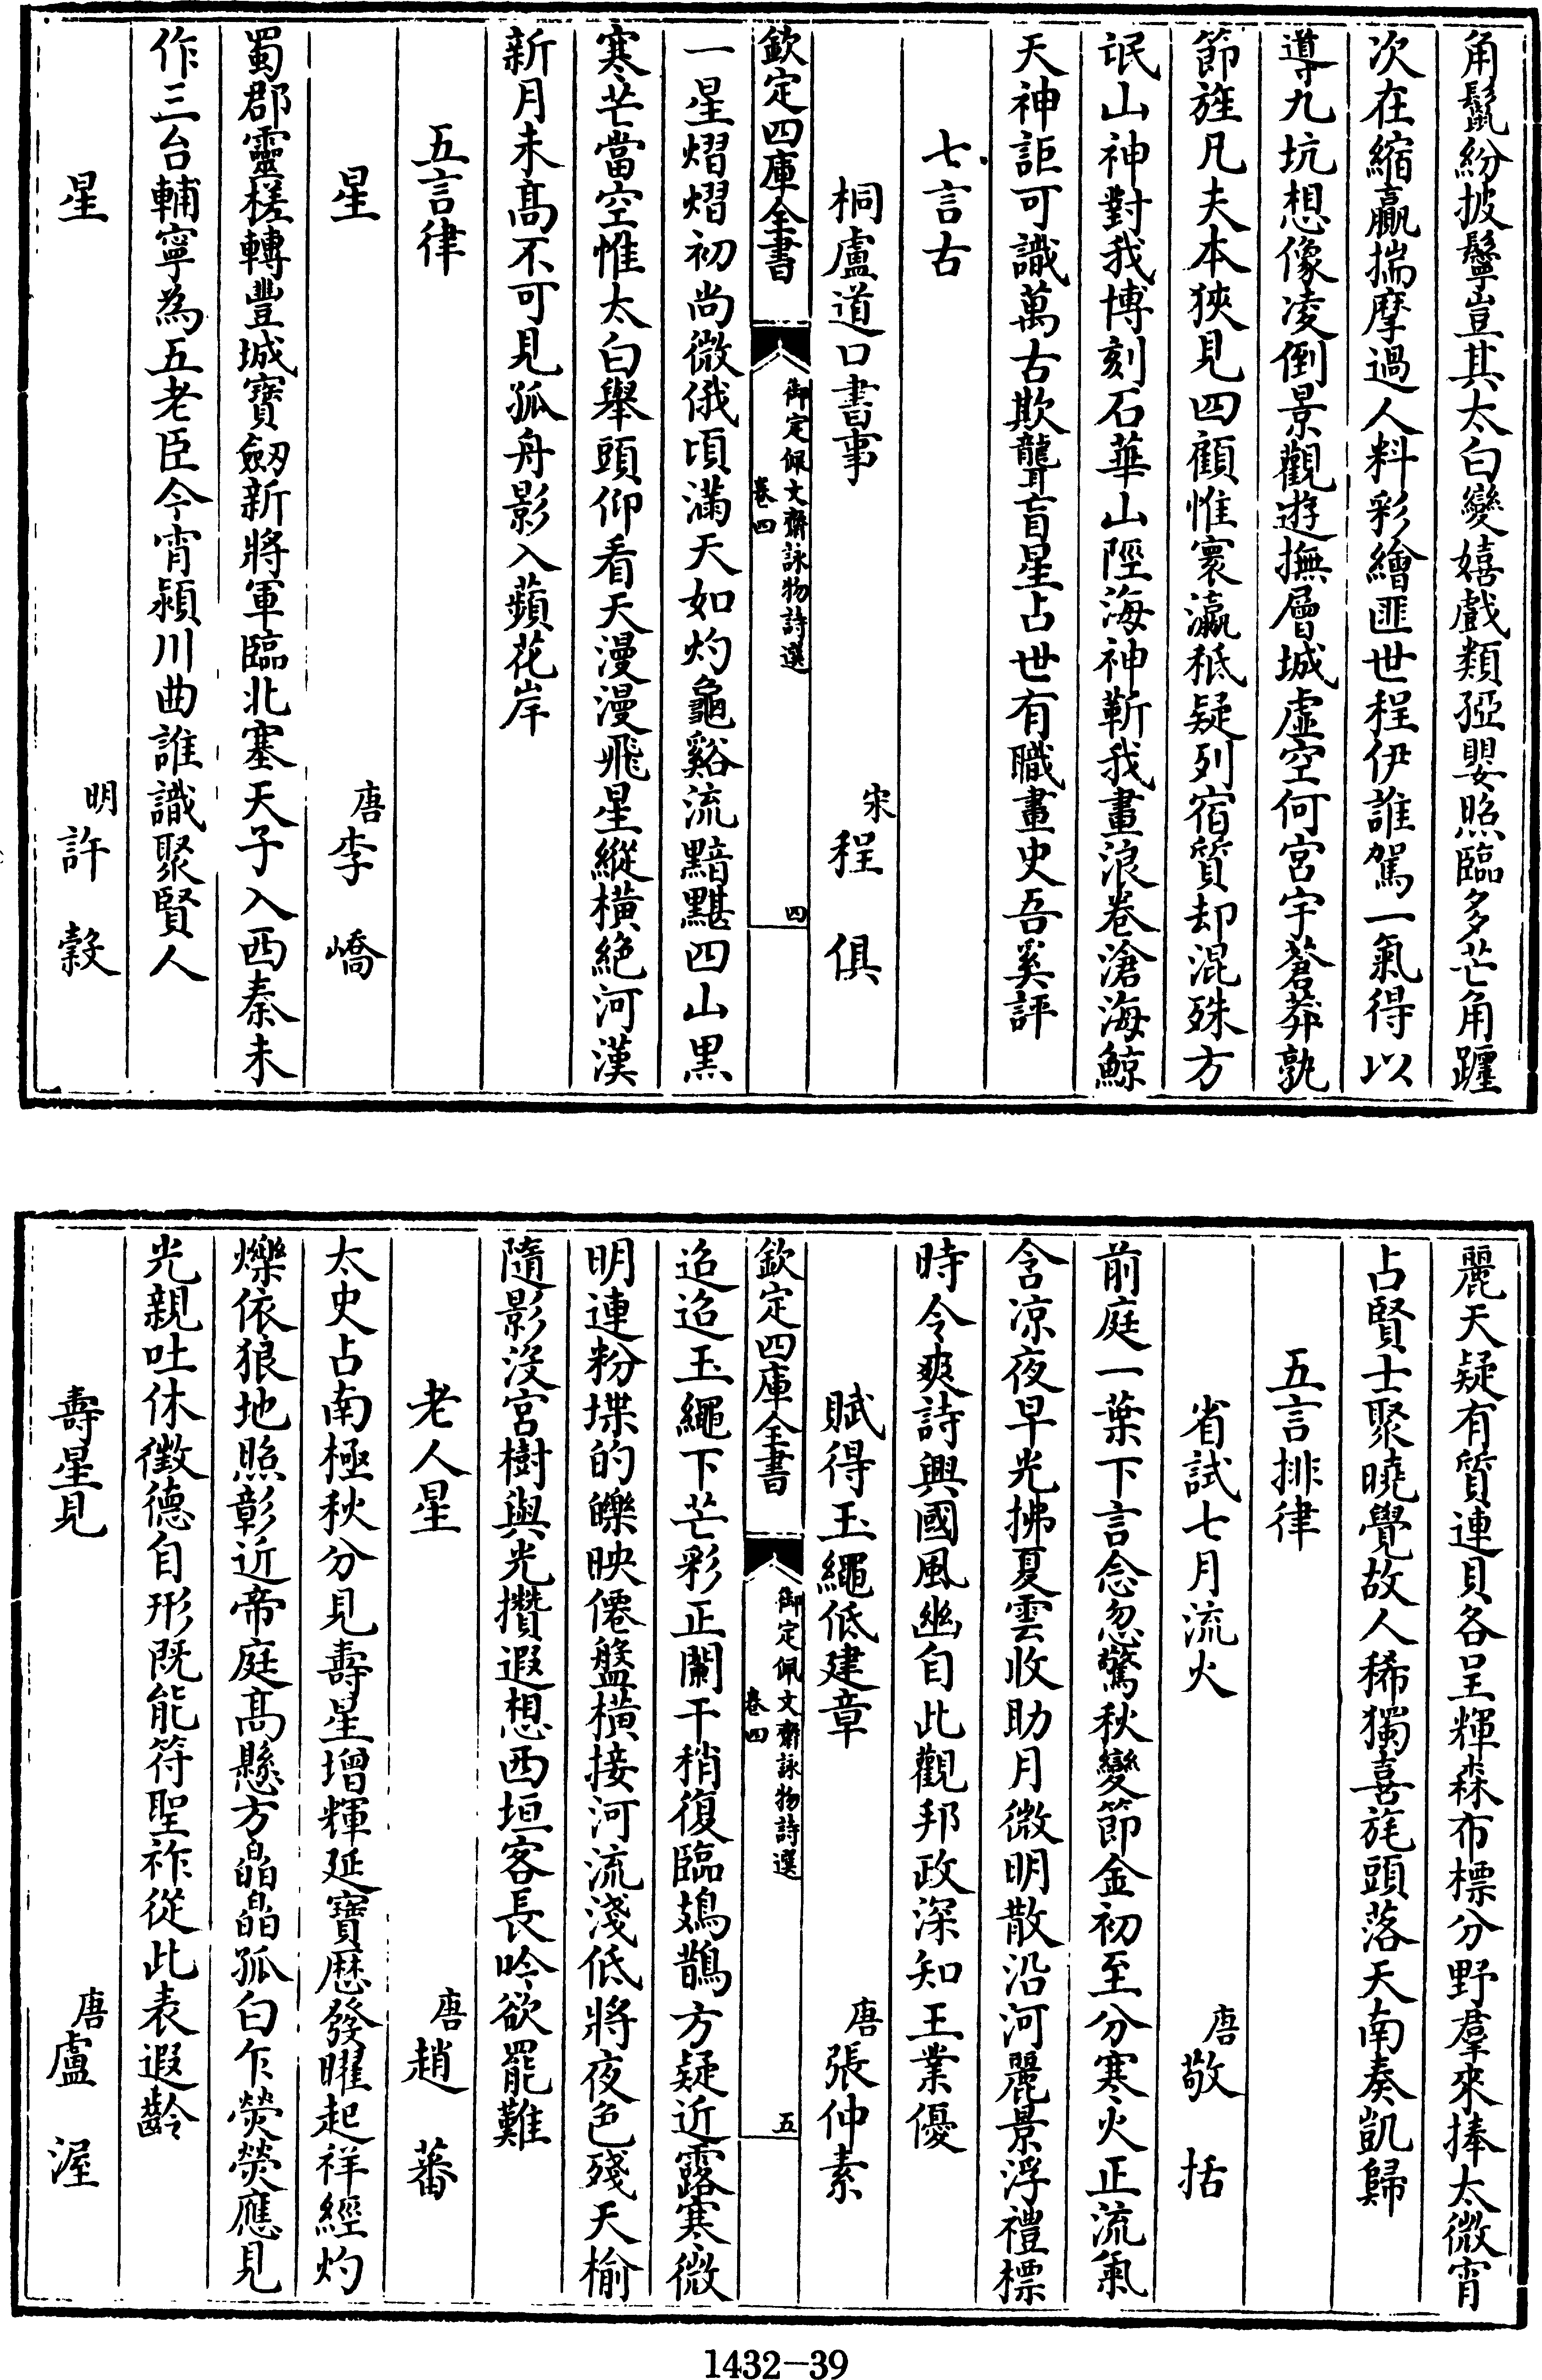 角鬛紛披鬡豈其太白變嬉戲類孲嬰照臨多芒角躔
次在縮贏揣摩過人料彩繪匪世程伊誰駕一氣得以
導九坑想像凌倒景觀遊撫層城虛空何宮宇蒼莽孰
節旌凡夫本狹見四顧惟寰瀛秪疑列宿質却混殊方
氓山神對我博刻石華山陘海神靳我畫浪卷滄海鯨
天神詎可識萬古欺聾盲星占世有職畫史吾奚評
七言古
桐廬道口書事 宋程俱
欽定四庫全書 御定佩文齋詠物詩選 卷四 四
一星熠熠初尚微俄頃滿天如灼龜谿流黯黮四山黒
寒芒當空惟太白舉頭仰看天漫漫飛星縱橫絶河漢
新月未髙不可見孤舟影入蘋花岸
五言律
星 唐李嶠
蜀郡靈槎轉豐城寶劒新將軍臨北塞天子入西秦未
作三台輔寧為五老臣今宵潁川曲誰識聚賢人
星 明許穀
麗天疑有質連貝各呈輝森布標分野羣來捧太微宵
占賢士聚曉覺故人稀獨喜旄頭落天南奏凱歸
五言排律
省試七月流火 唐敬括
前庭一葉下言念忽驚秋變節金初至分寒火正流氣
含凉夜早光拂夏雲收助月微明散沿河麗景浮禮標
時令爽詩興國風幽自此觀邦政深知王業優
賦得玉繩低建章 唐張仲素
欽定四庫全書 御定佩文齋詠物詩選 卷四 五
迢迢玉繩下芒彩正闌干稍復臨鳷鵲方疑近露寒微
明連粉堞的皪映僊盤橫接河流淺低將夜色殘天榆
隨影沒宮樹與光攢遐想西垣客長吟欲罷難
老人星 唐趙蕃
太史占南極秋分見壽星增輝延寶厯發曜起祥經灼
爍依狼地照彰近帝庭髙懸方皛皛孤白乍熒熒應見
光親吐休徵德自形既能符聖祚從此表遐齡
壽星見 唐盧渥
1432-39